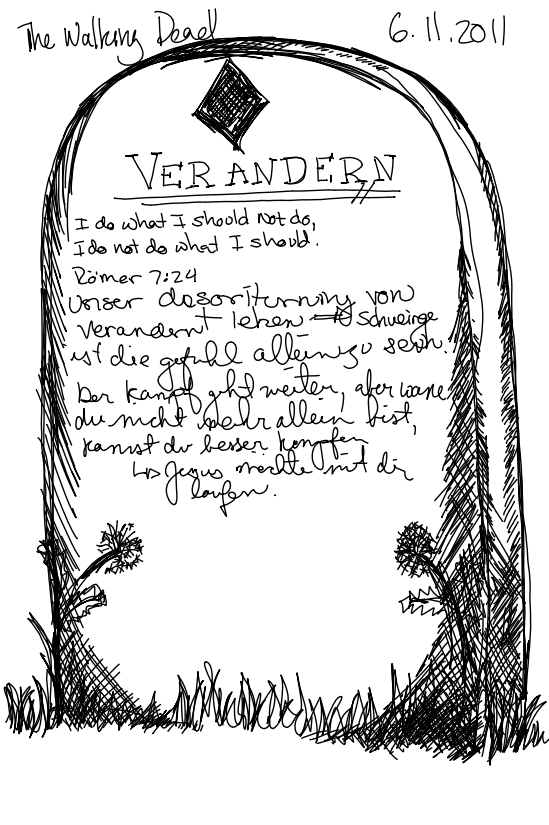 The Walking Dead 6.11.2011
VERANDERN
I do what I should not do,
I do not do what I should.
Römer 7:24
Unser von
Verandernt leben
ist die gefuhl allein zu sein.
Der Kampf geht weiter, aber wann
du nicht mehr allein bist,
kannst du besser kampfen
↳ Jesus mochte mit dir
laufen.